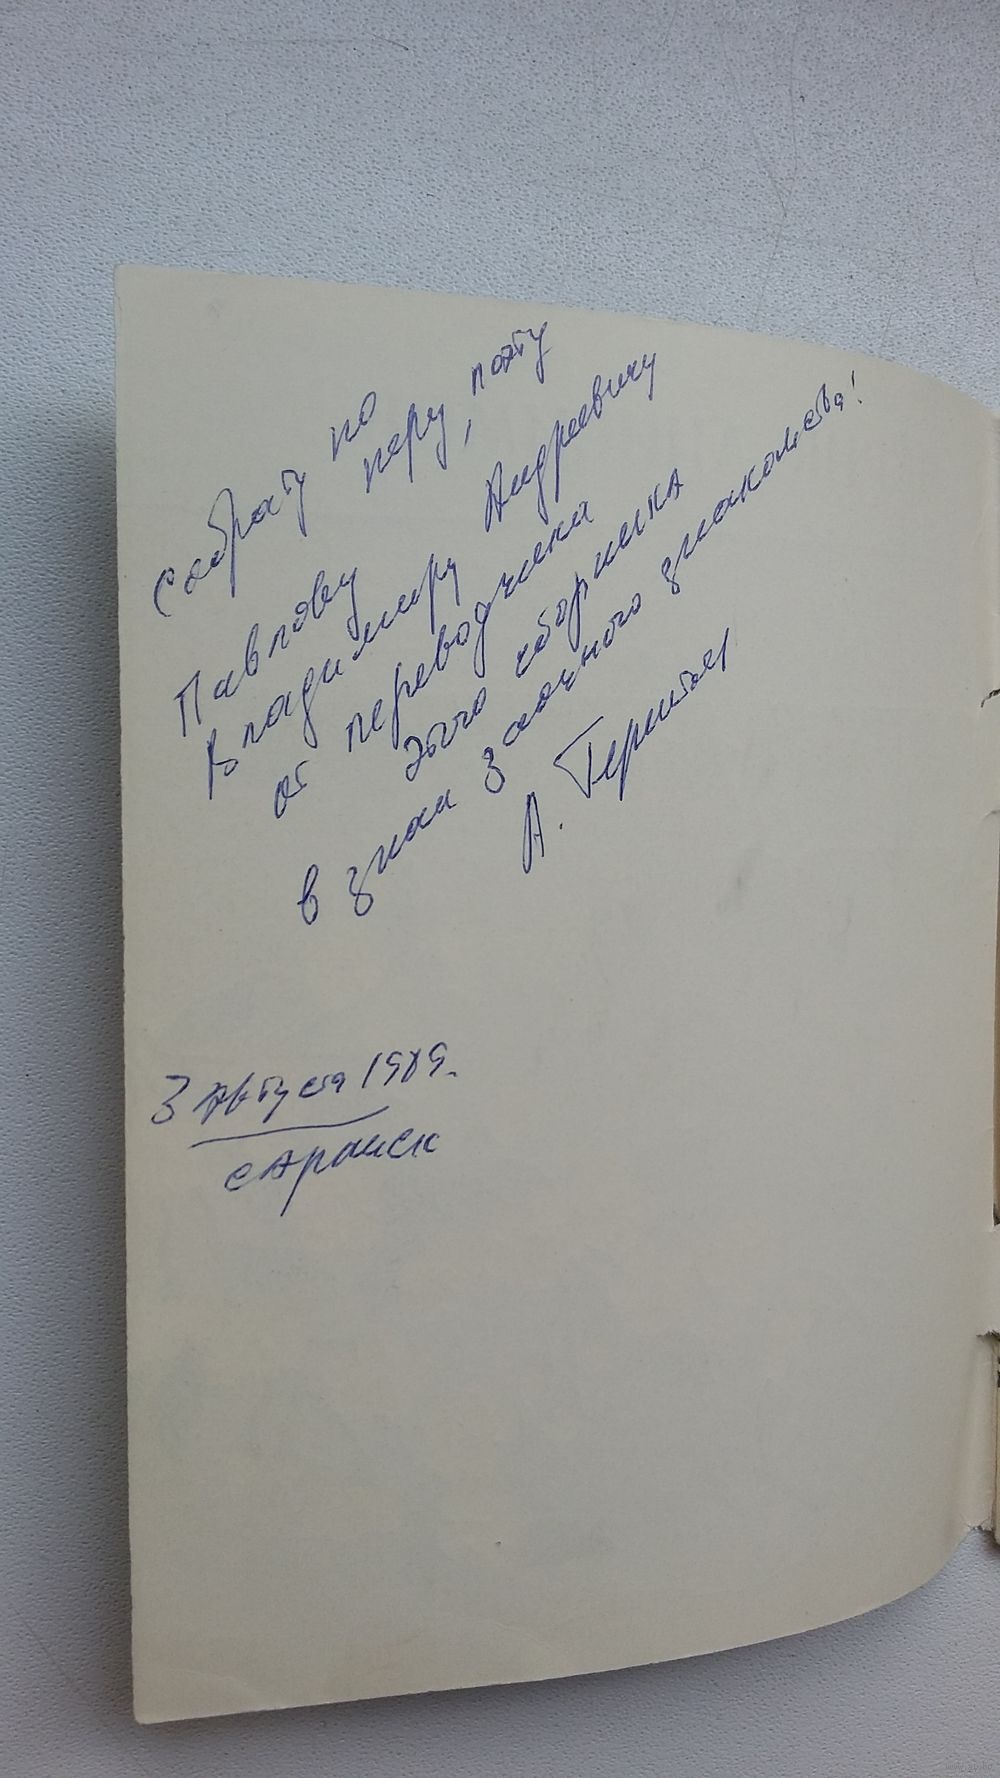 Собрату по перу, поэту
Павлову
Владимиру Андреевичу
от переводчика
этого сборника
в знак заочного знакомства!
А. Терентьев
3 августа 1989.
Саранск